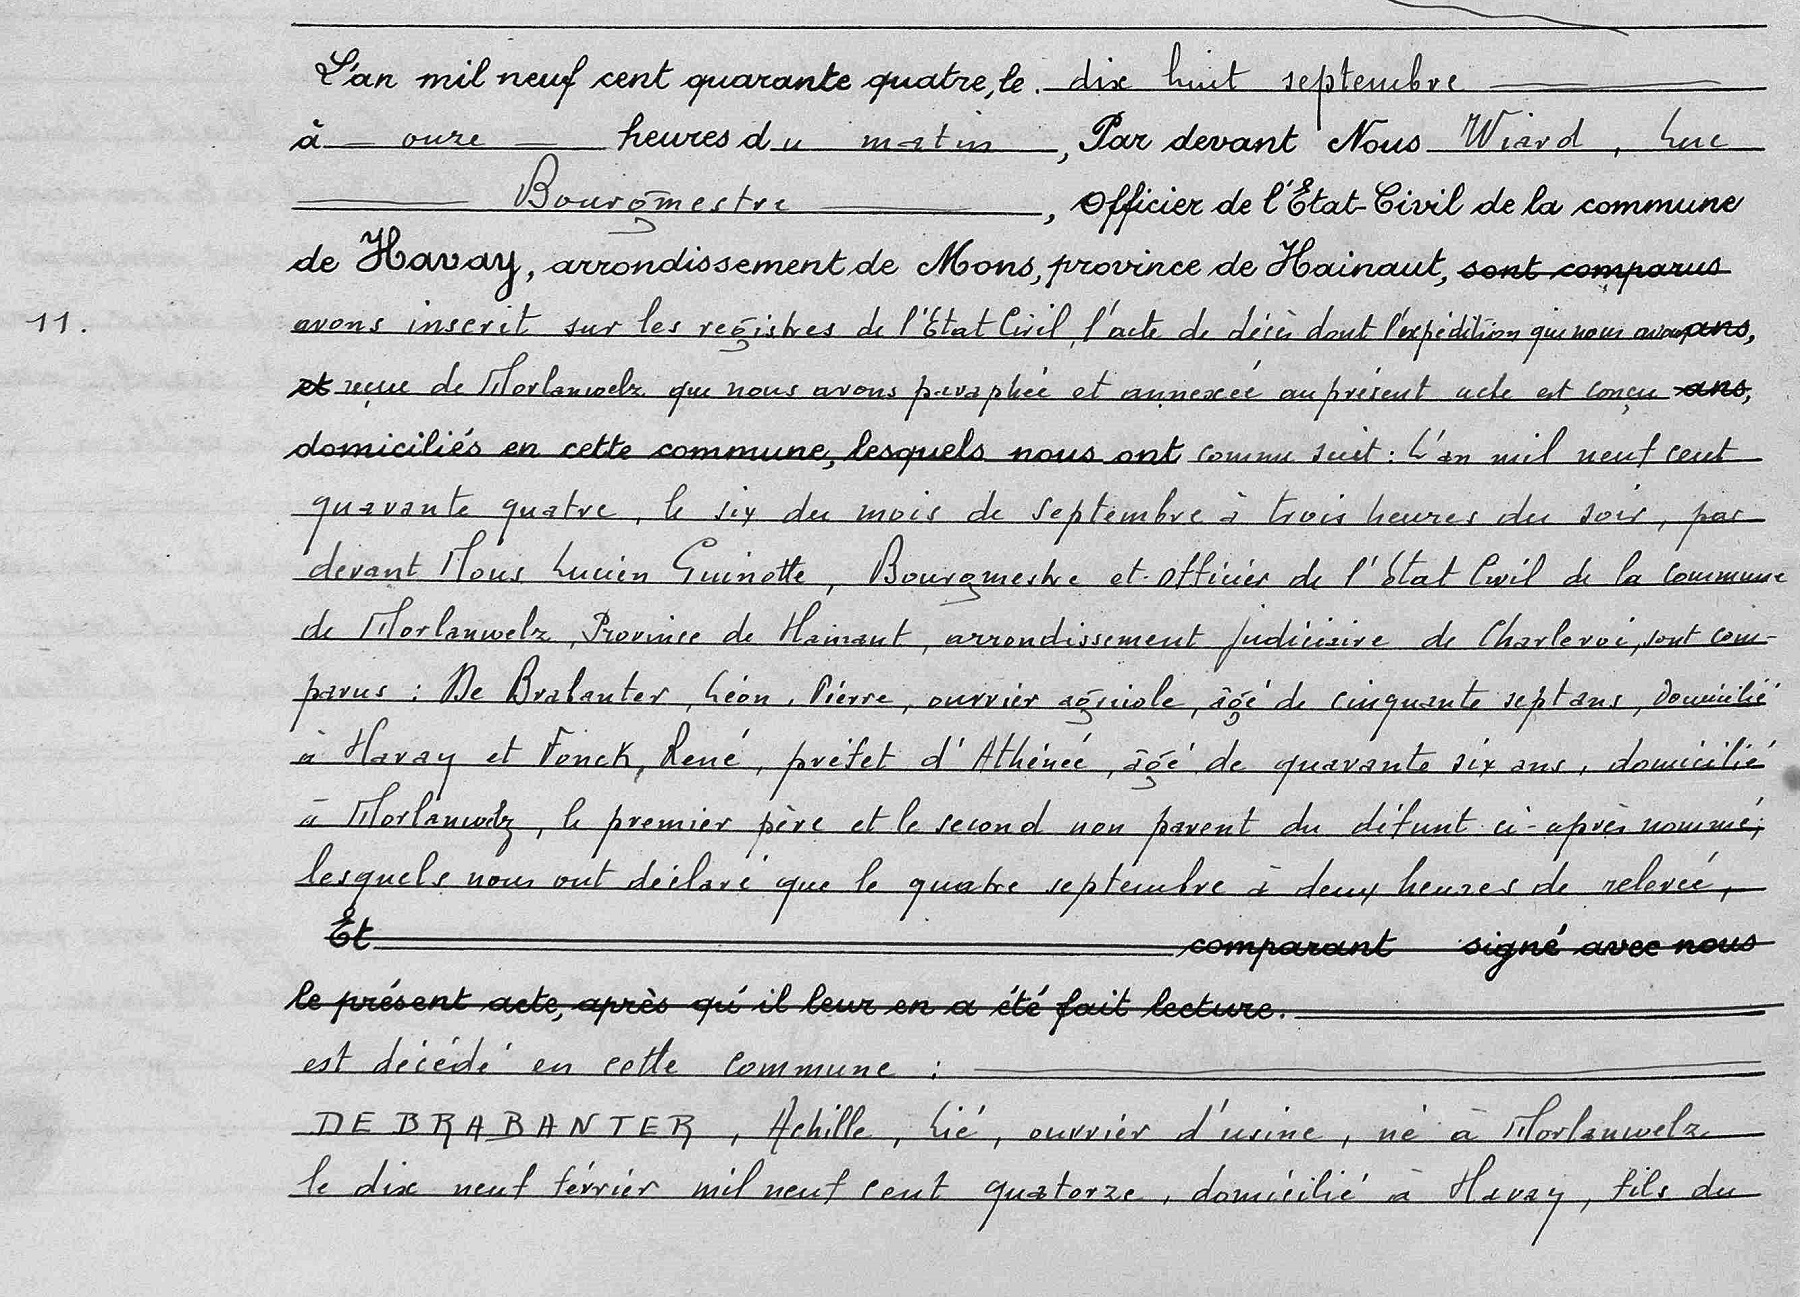 L'an mil neuf cent quarante quatre, le. dix huit septembre
à onze heures du matin, Par devant Nous Wiard, Luc
Bourgmestre, Officier de l'Etat-Civil de la commune
de Havay, arrondissement de Mons, province de Hainaut, sont comparus
11. avons inscrit sur les registres de l'Etat Civil, l'acte de décès dont l'expédition que nous avons ans,
et reçue de Morlanwelz que nous avons paraphée et annexée au présent acte est conçu ans,
domiciliés en cette commune, lesquels nous ont comme suit : L'an mil neuf cent
quarante quatre, le six du mois de septembre à trois heures du soir, par
devant Nous Lucien Guinotte, Bourgmestre et Officier de l'Etat Civil de la commune
de Morlanwelz, Province de Hainaut, arrondissement judiciaire de Charleroi, sont com-
parus : De Brabanter, Léon, Pierre, ouvrier agricole, âgé de cinquante sept ans, domicilié
à Havay et Fonck, René, préfet d'Athénée, âgé de quarante six ans, domicilié
à Morlanwelz, le premier père et le second non parent du défunt ci-après nommé;
lesquels nous ont déclaré que le quatre septembre à deux heures de relevée,
Et comparant signé avec nous
le présent acte, après qu'il leur en a été fait lecture.
est décédé en cette commune :
DE BRABANTER, Achille, Lié, ouvrier d'usine, né à Morlanwelz
le dix neuf février mil neuf cent quatorze, domicilié à Havay, fils du